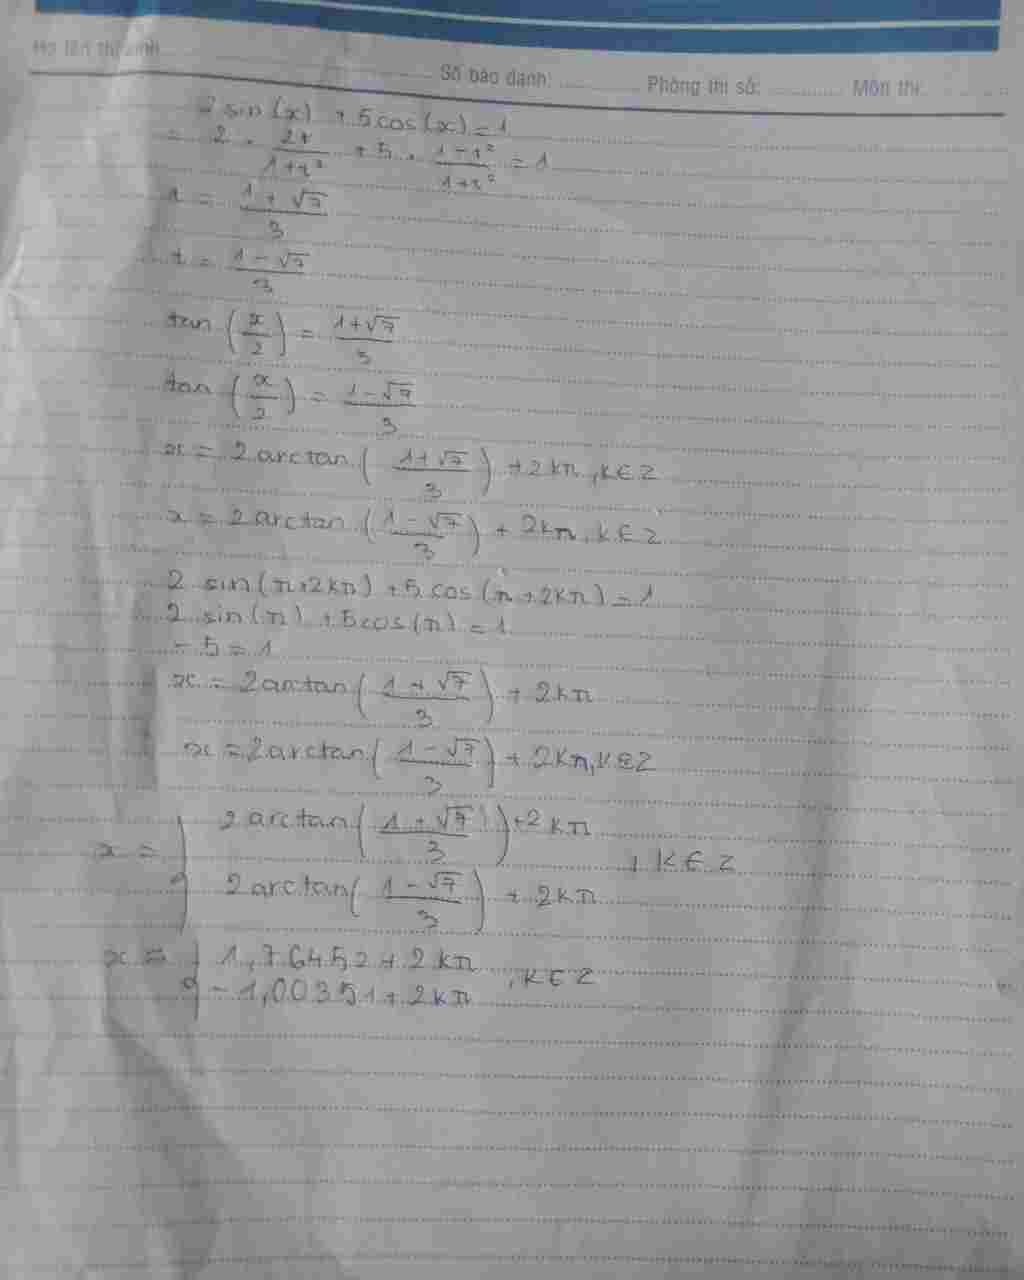 Họ tên thí sinh
Số báo danh: Phòng thi số: Môn thi:
2 sin(x) + 5 cos(x) = 1
= 2 . 2t/(1+t²) + 5 . (1-t²)/(1+t²) = 1
t = (1+√7)/3
t = (1-√7)/3
tan(x/2) = (1+√7)/3
tan(x/2) = (1-√7)/3
x = 2 arctan((1+√7)/3) + 2kπ, k∈Z
x = 2 arctan((1-√7)/3) + 2kπ, k∈Z
2 sin(π+2kπ) + 5 cos(π+2kπ) = 1
2 sin(π) + 5cos(π) = 1
-5 = 1
x = 2arctan((1+√7)/3) + 2kπ
x = 2arctan((1-√7)/3) + 2kπ, k∈Z
x = { 2 arctan((1+√7)/3) + 2kπ
2 arctan((1-√7)/3) + 2kπ , k∈Z
x = { 1,76452 + 2kπ
-1,00351 + 2kπ , k∈Z